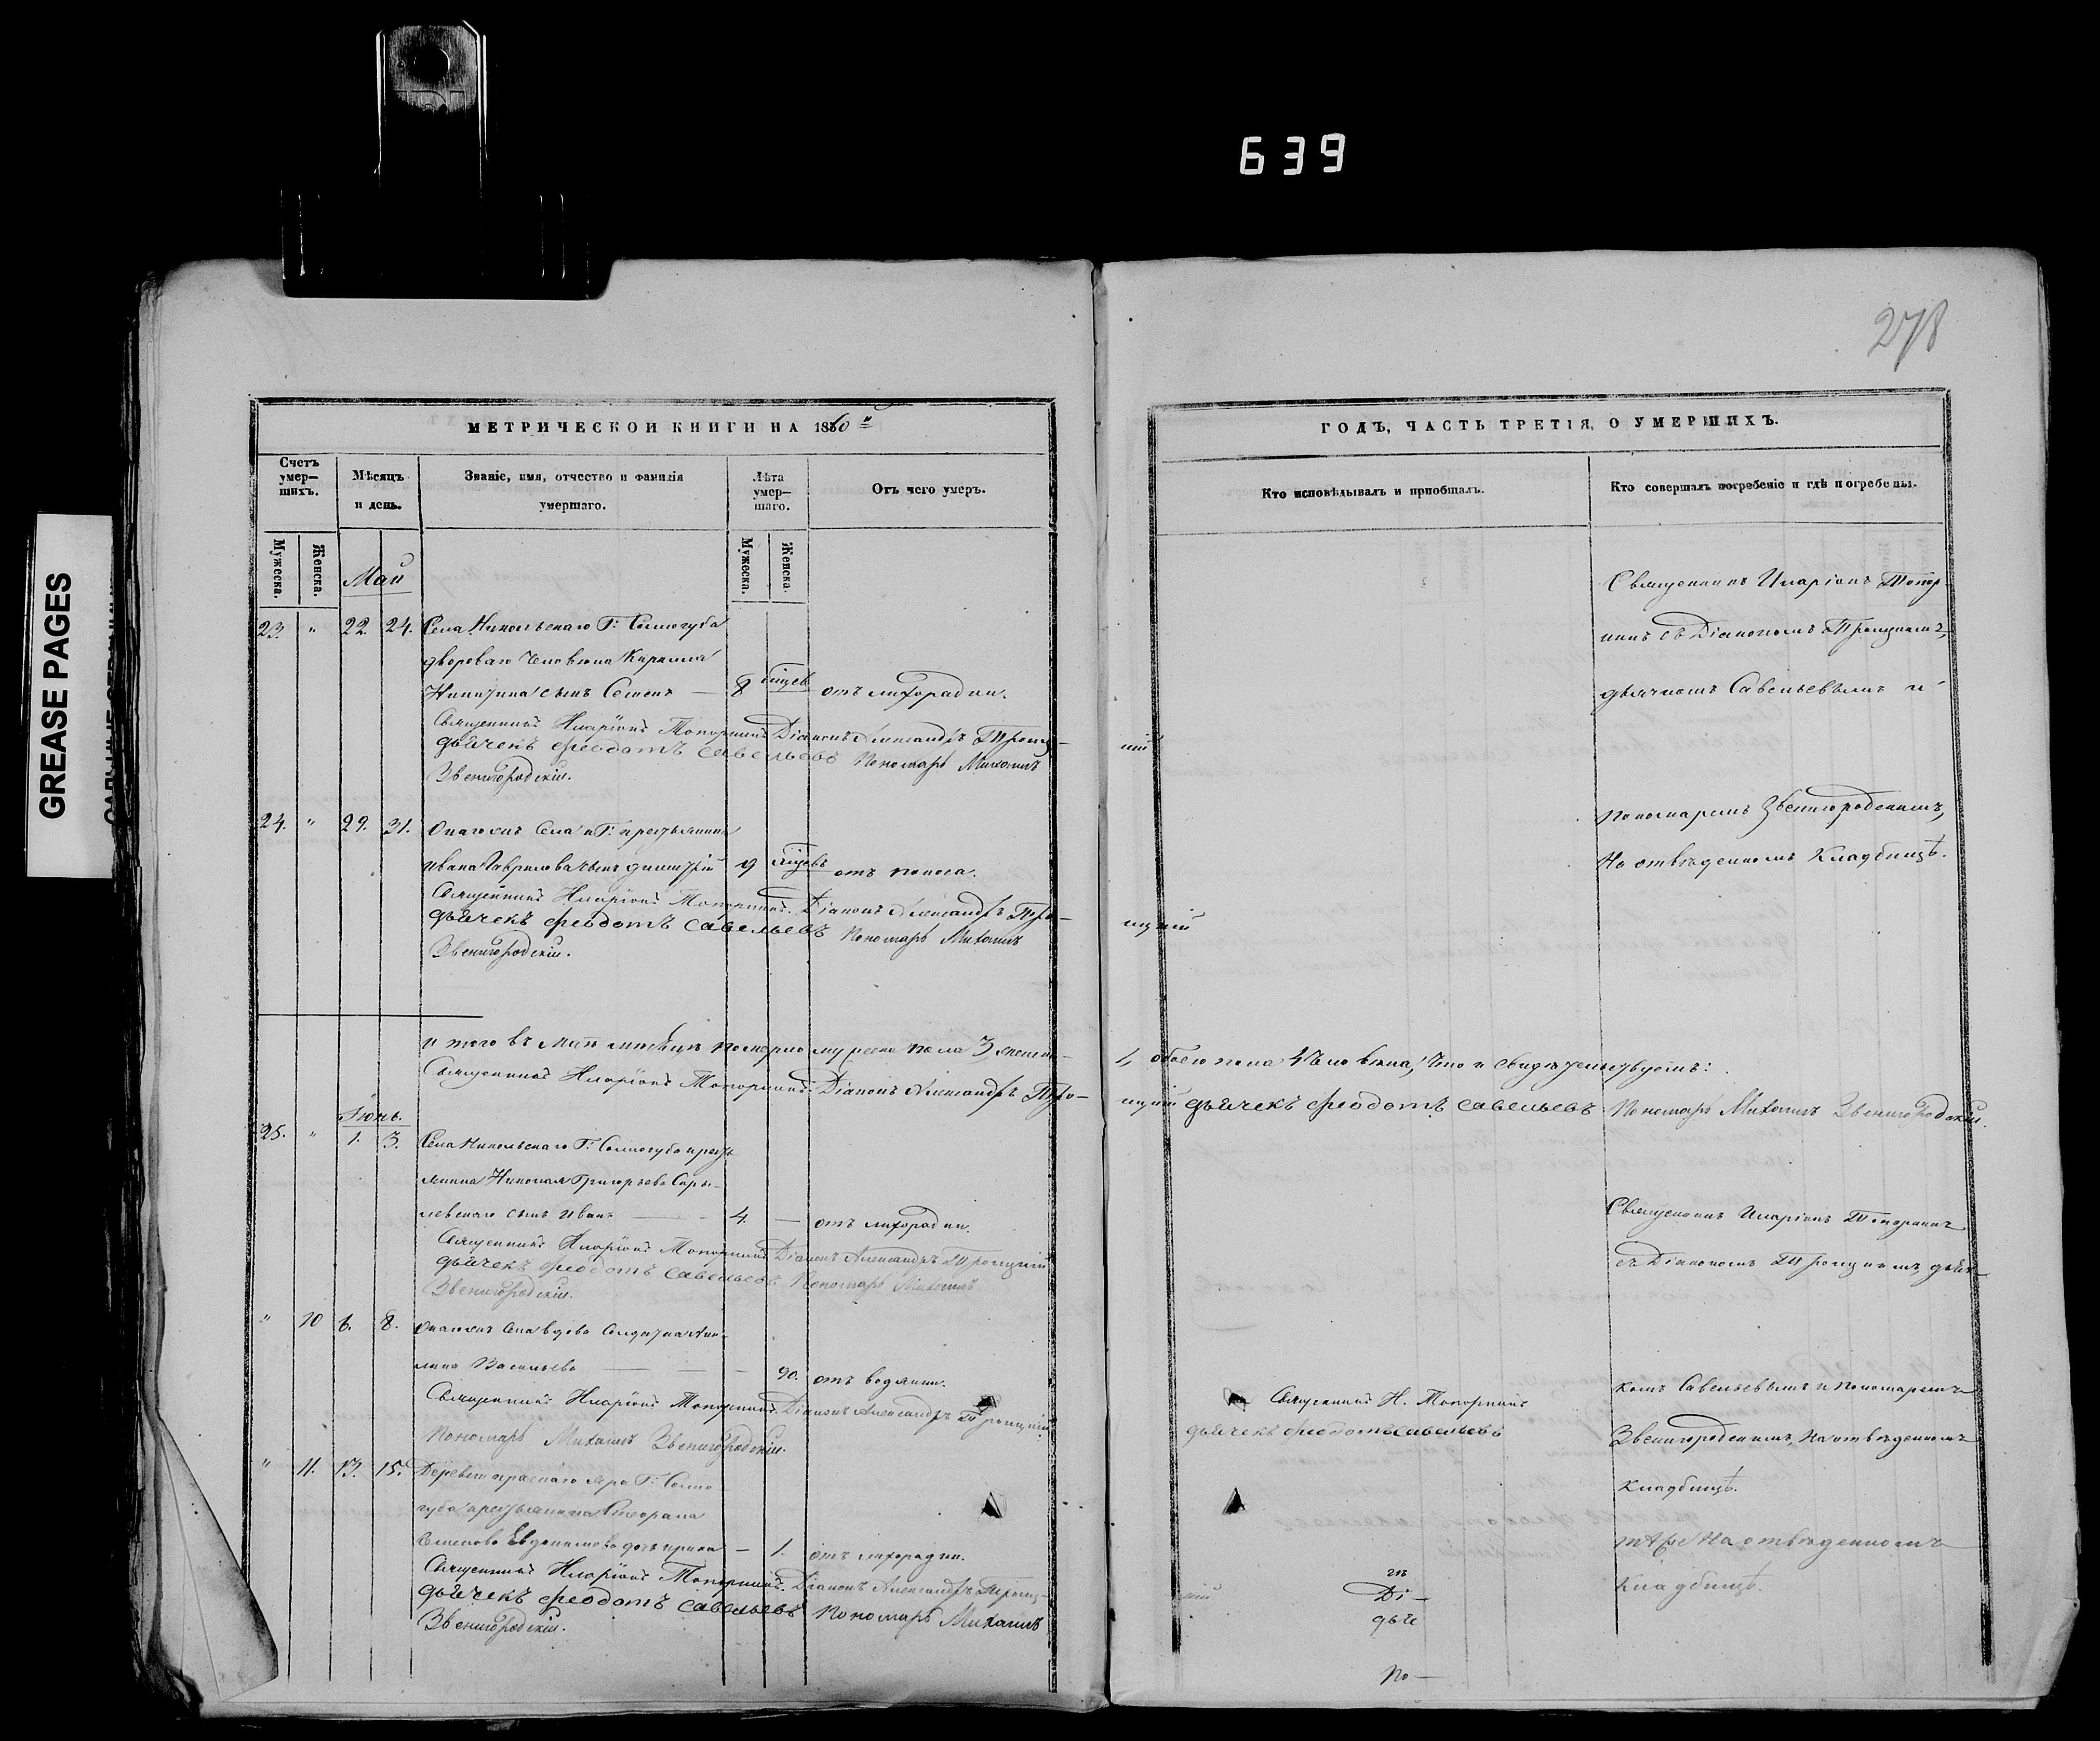 639
GREASE PAGES
278
МЕТРИЧЕСКОЙ КНИГИ НА 1860й
Счетъ умер-шихъ.
Мѣсяцъ и день.
Званіе, имя, отчество и фамилія умершаго.
Лѣта умер-шаго.
Отъ чего умеръ.
Мужеска.
Женска.
Мужеска.
Женска.
Май
23. " 22. 24. Села Никольскаго Г: Сологуба
двороваго человѣка Кирилла
Никитина сынъ Семенъ — 8 отъ лихорадки.
Священникъ Иларіонъ Топорнинъ Діаконъ Александръ Троиц-
дьячекъ Феодотъ Савельевъ Пономарь Михаилъ
Звенигородскій.
24. " 29. 31. Онагожъ села и Г: крестьянина
Ивана Гаврилова сынъ Димитрій 9 отъ поноса.
Священникъ Иларіонъ Топорнинъ. Діаконъ Александръ Тро-
дьячекъ Феодотъ Савельевъ Пономарь Михаилъ
Звенигородскій.
и того въ маѣ мѣсяцѣ померло мужеска пола 3 женска-
Священникъ Иларіонъ Топорнинъ. Діаконъ Александръ Тро-
Іюнь.
25. " 1. 3. Села Никольскаго Г: Сологуба кресть
янина Николая Григорьева
сынъ Иванъ — 4. — отъ лихорадки.
Священникъ Иларіонъ Топорнинъ Діаконъ Александръ Троицкій
дьячекъ Феодотъ Савельевъ Пономарь Михаилъ
Звенигородскій.
" 10 6. 8. Онагожъ села вдова солдатка
Васильева — — — 90. отъ водянки.
Священникъ Иларіонъ Топорнинъ. Діаконъ Александръ Троицкій
Пономарь Михаилъ Звенигородскій.
" 11. 13. 15. Деревни Краснаго яра Г: Соло
губа крестьянина
Евдокимова дочь — 1. отъ лихорадки.
Священникъ Иларіонъ Топорнинъ. Діаконъ Александръ Троиц-
дьячекъ Феодотъ Савельевъ Пономарь Михаилъ
Звенигородскій.
ГОДЪ, ЧАСТЬ ТРЕТІЯ, О УМЕРШИХЪ.
Кто исповѣдывалъ и пріобщалъ.
Кто совершалъ погребеніе и гдѣ погребены.
Священникъ Иларіонъ Топор-
нинъ съ Діакономъ Троицкимъ,
дьячкомъ Савельевымъ и
кій
пономаремъ Звенигородскимъ,
На отвѣденномъ кладбищѣ.
ицкій
обоего пола 4 человѣка, что и свидѣтельствуемъ:
ицкій дьячекъ Феодотъ Савельевъ Пономарь Михаилъ Звенигородскій.
Священникъ Иларіонъ Топорнинъ
съ Діакономъ Троицкимъ, дьяч-
Священникъ И. Топорнинъ
дьячекъ Феодотъ Савельевъ
комъ Савельевымъ и пономаремъ
Звенигородскимъ, На отвѣденномъ
кладбищѣ.
тѣже На отвѣденномъ
кладбищѣ.
кій
Ді-
дьяч
По-